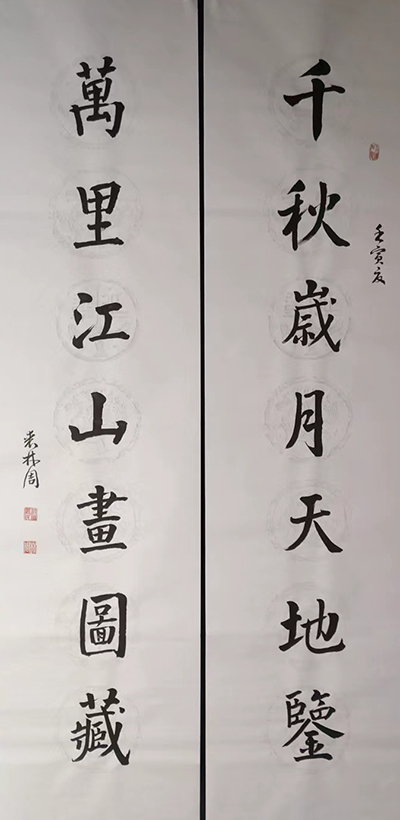 千秋歲月天地鑒
壬寅夏
萬里江山畫圖藏
袁林周